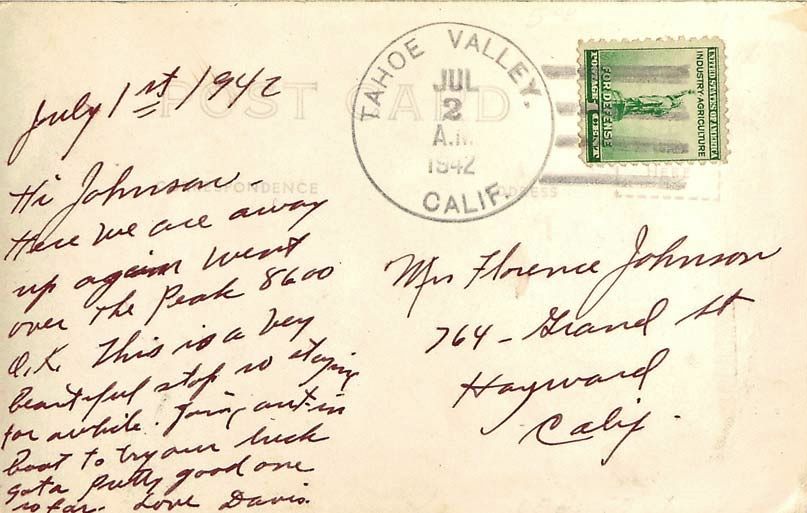 POST CARD
CORRESPONDENCE
ADDRESS
HERE
TAHOE VALLEY,
JUL
2
A.M.
1942
CALIF.
UNITED STATES OF AMERICA
INDUSTRY AGRICULTURE
FOR DEFENSE
POSTAGE 1 CENT
July 1st 1942
Hi Johnson -
Here we are away
up again went
over the Peak 8600
O.K. This is a very
beautiful stop so staying
for awhile. Going out in
boat to try our luck
gota pretty good one
so far. Love Davis.
Mrs Florence Johnson
764 - Grand St
Hayward
Calif.